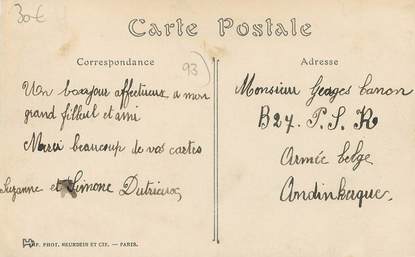 30€
Carte Postale
Correspondance
93
Un bonjour affectueux a mon
grand filleul et ami
Merci beaucoup de vos cartes
Suzanne et Simone Dutrieux
Adresse
Monsieur Georges Canon
B27. P. S. R.
Armée belge
Andinkerque.
IMP. PHOT. NEURDEIN ET CIE. — PARIS.